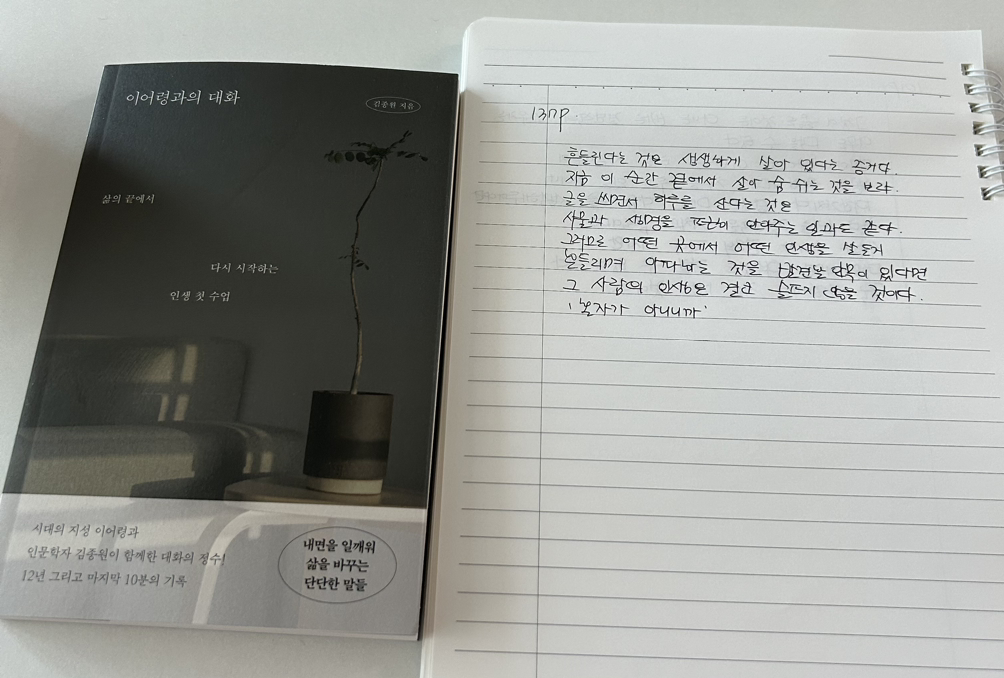 이어령과의 대화
김종원 지음
삶의 끝에서
다시 시작하는
인생 첫 수업
시대의 지성 이어령과
인문학자 김종원이 함께한 대화의 정수!
12년 그리고 마지막 10분의 기록
내면을 일깨워
삶을 바꾸는
단단한 말들
137p.
흔들린다는 것은 생생하게 살아 있다는 증거다.
지금 이 순간 곁에서 살아 숨 쉬는 것을 보라.
글을 쓰면서 하루를 산다는 것은
사물과 생명을 가만히 안아주는 일과도 같다.
그러므로 어떤 곳에서 어떤 인생을 살든지
흔들리며 아파하는 것을 발견할 안목이 있다면
그 사람의 인생은 결코 슬프지 않을 것이다.
'혼자가 아니니까'